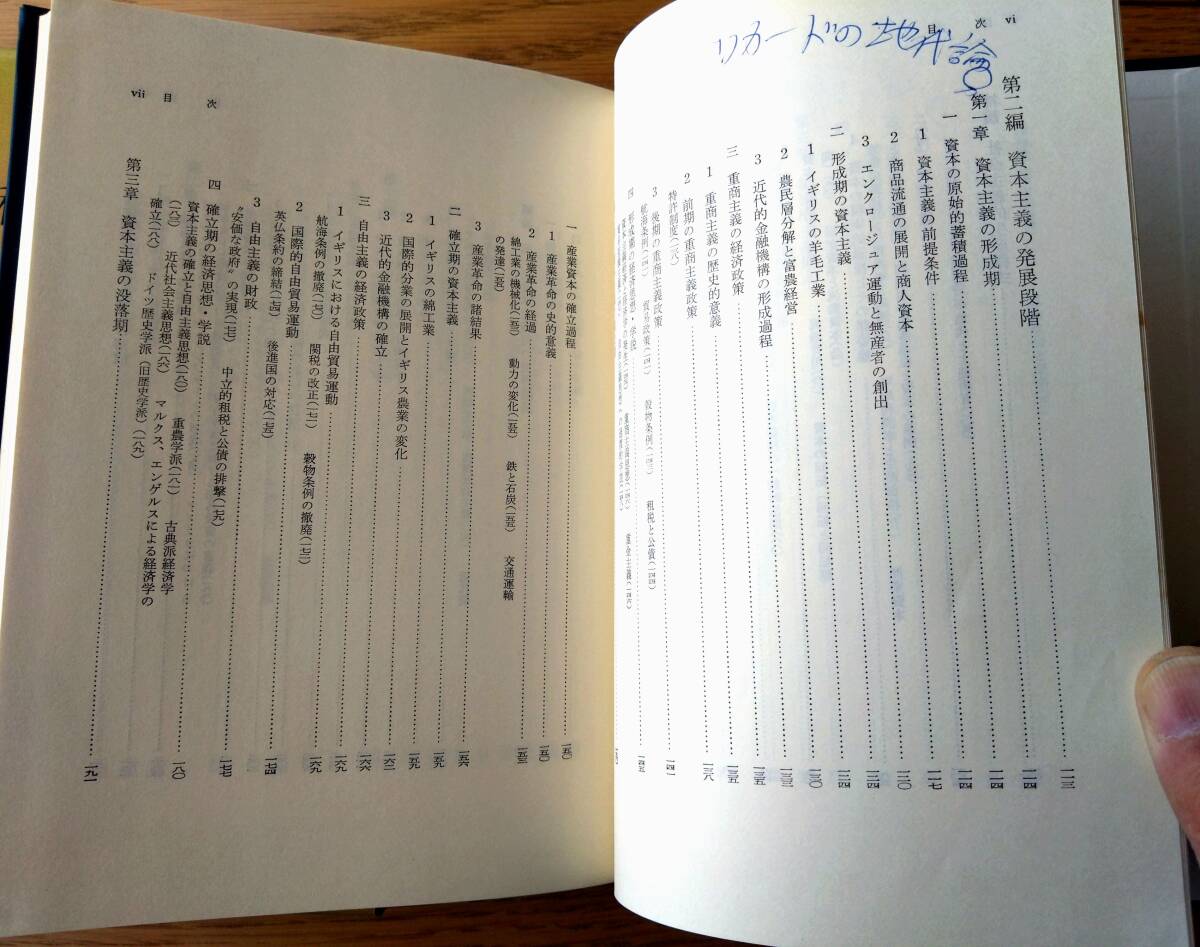 リカードの地代論
目次 vi
第二編 資本主義の発展段階……一一三
第一章 資本主義の形成期……一一四
一 資本の原始的蓄積過程……一一四
1 資本主義の前提条件……一一四
2 商品流通の展開と商人資本……一一七
3 エンクロージュア運動と無産者の創出……一二〇
二 形成期の資本主義……一二四
1 イギリスの羊毛工業……一二四
2 農民層分解と富農経営……一三〇
3 近代的金融機構の形成過程……一三三
三 重商主義の経済政策……一三五
1 重商主義の歴史的意義……一三五
2 前期の重商主義政策……一三八
特許制度(一三八)
3 後期の重商主義政策……一四一
航海条例(一四一) 貿易政策(一四二) 穀物条例(一四三) 租税と公債(一四四)
四 形成期の経済思想・学説……一四五
vii 目次
一 産業資本の確立過程……一五〇
1 産業革命の史的意義……一五〇
2 産業革命の経過……一五二
綿工業の機械化(一五二) 動力の変化(一五三) 鉄と石炭(一五三) 交通運輸
の発達(一五五)
3 産業革命の諸結果
二 確立期の資本主義……一五六
1 イギリスの綿工業……一五九
2 国際的分業の展開とイギリス農業の変化……一五九
3 近代的金融機構の確立……一六二
三 自由主義の経済政策……一六六
1 イギリスにおける自由貿易運動……一六九
航海条例の撤廃(一七〇) 関税の改正(一七一) 穀物条例の撤廃(一七二)……一六九
2 国際的自由貿易運動
英仏条約の締結(一七四) 後進国の対応(一七五)……一七四
3 自由主義の財政
"安価な政府"の実現(一七七) 中立的租税と公債の排撃(一七九)……一七七
四 確立期の経済思想・学説
資本主義の確立と自由主義思想(一八〇) 重農学派(一八一) 古典派経済学……一八〇
(一八三) 近代社会主義思想(一八六) マルクス、エンゲルスによる経済学の
確立(一八八) ドイツ歴史学派(旧歴史学派)(一八九)
第三章 資本主義の没落期……一九一